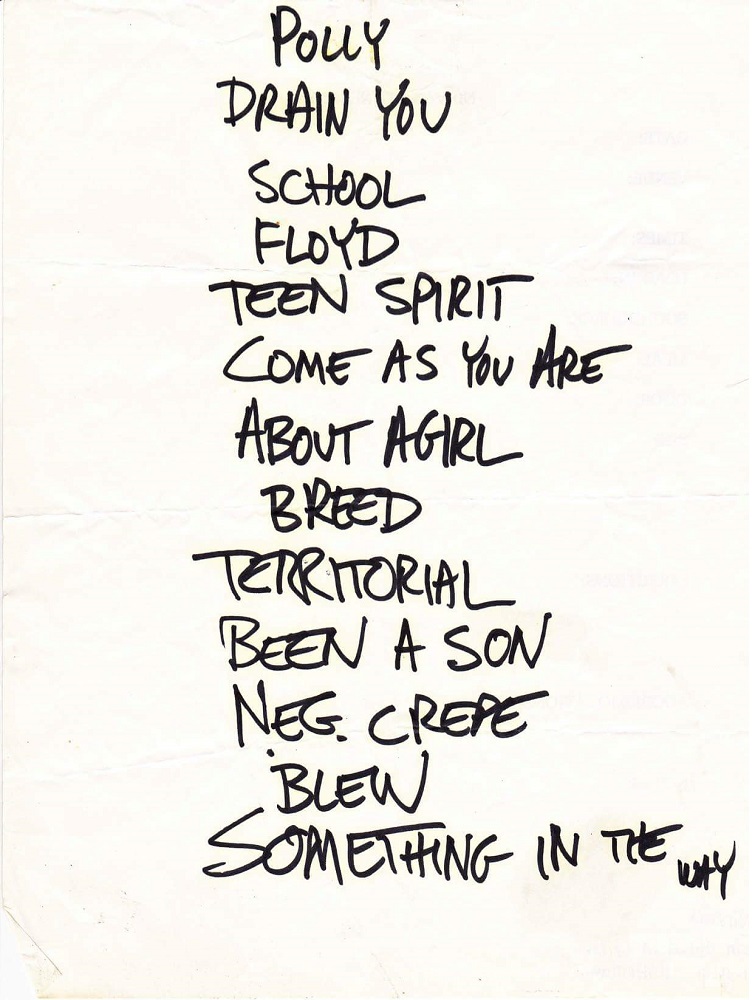 POLLY
DRAIN YOU
SCHOOL
FLOYD
TEEN SPIRIT
COME AS YOU ARE
ABOUT A GIRL
BREED
TERRITORIAL
BEEN A SON
NEG. CREPE
BLEW
SOMETHING IN THE WAY